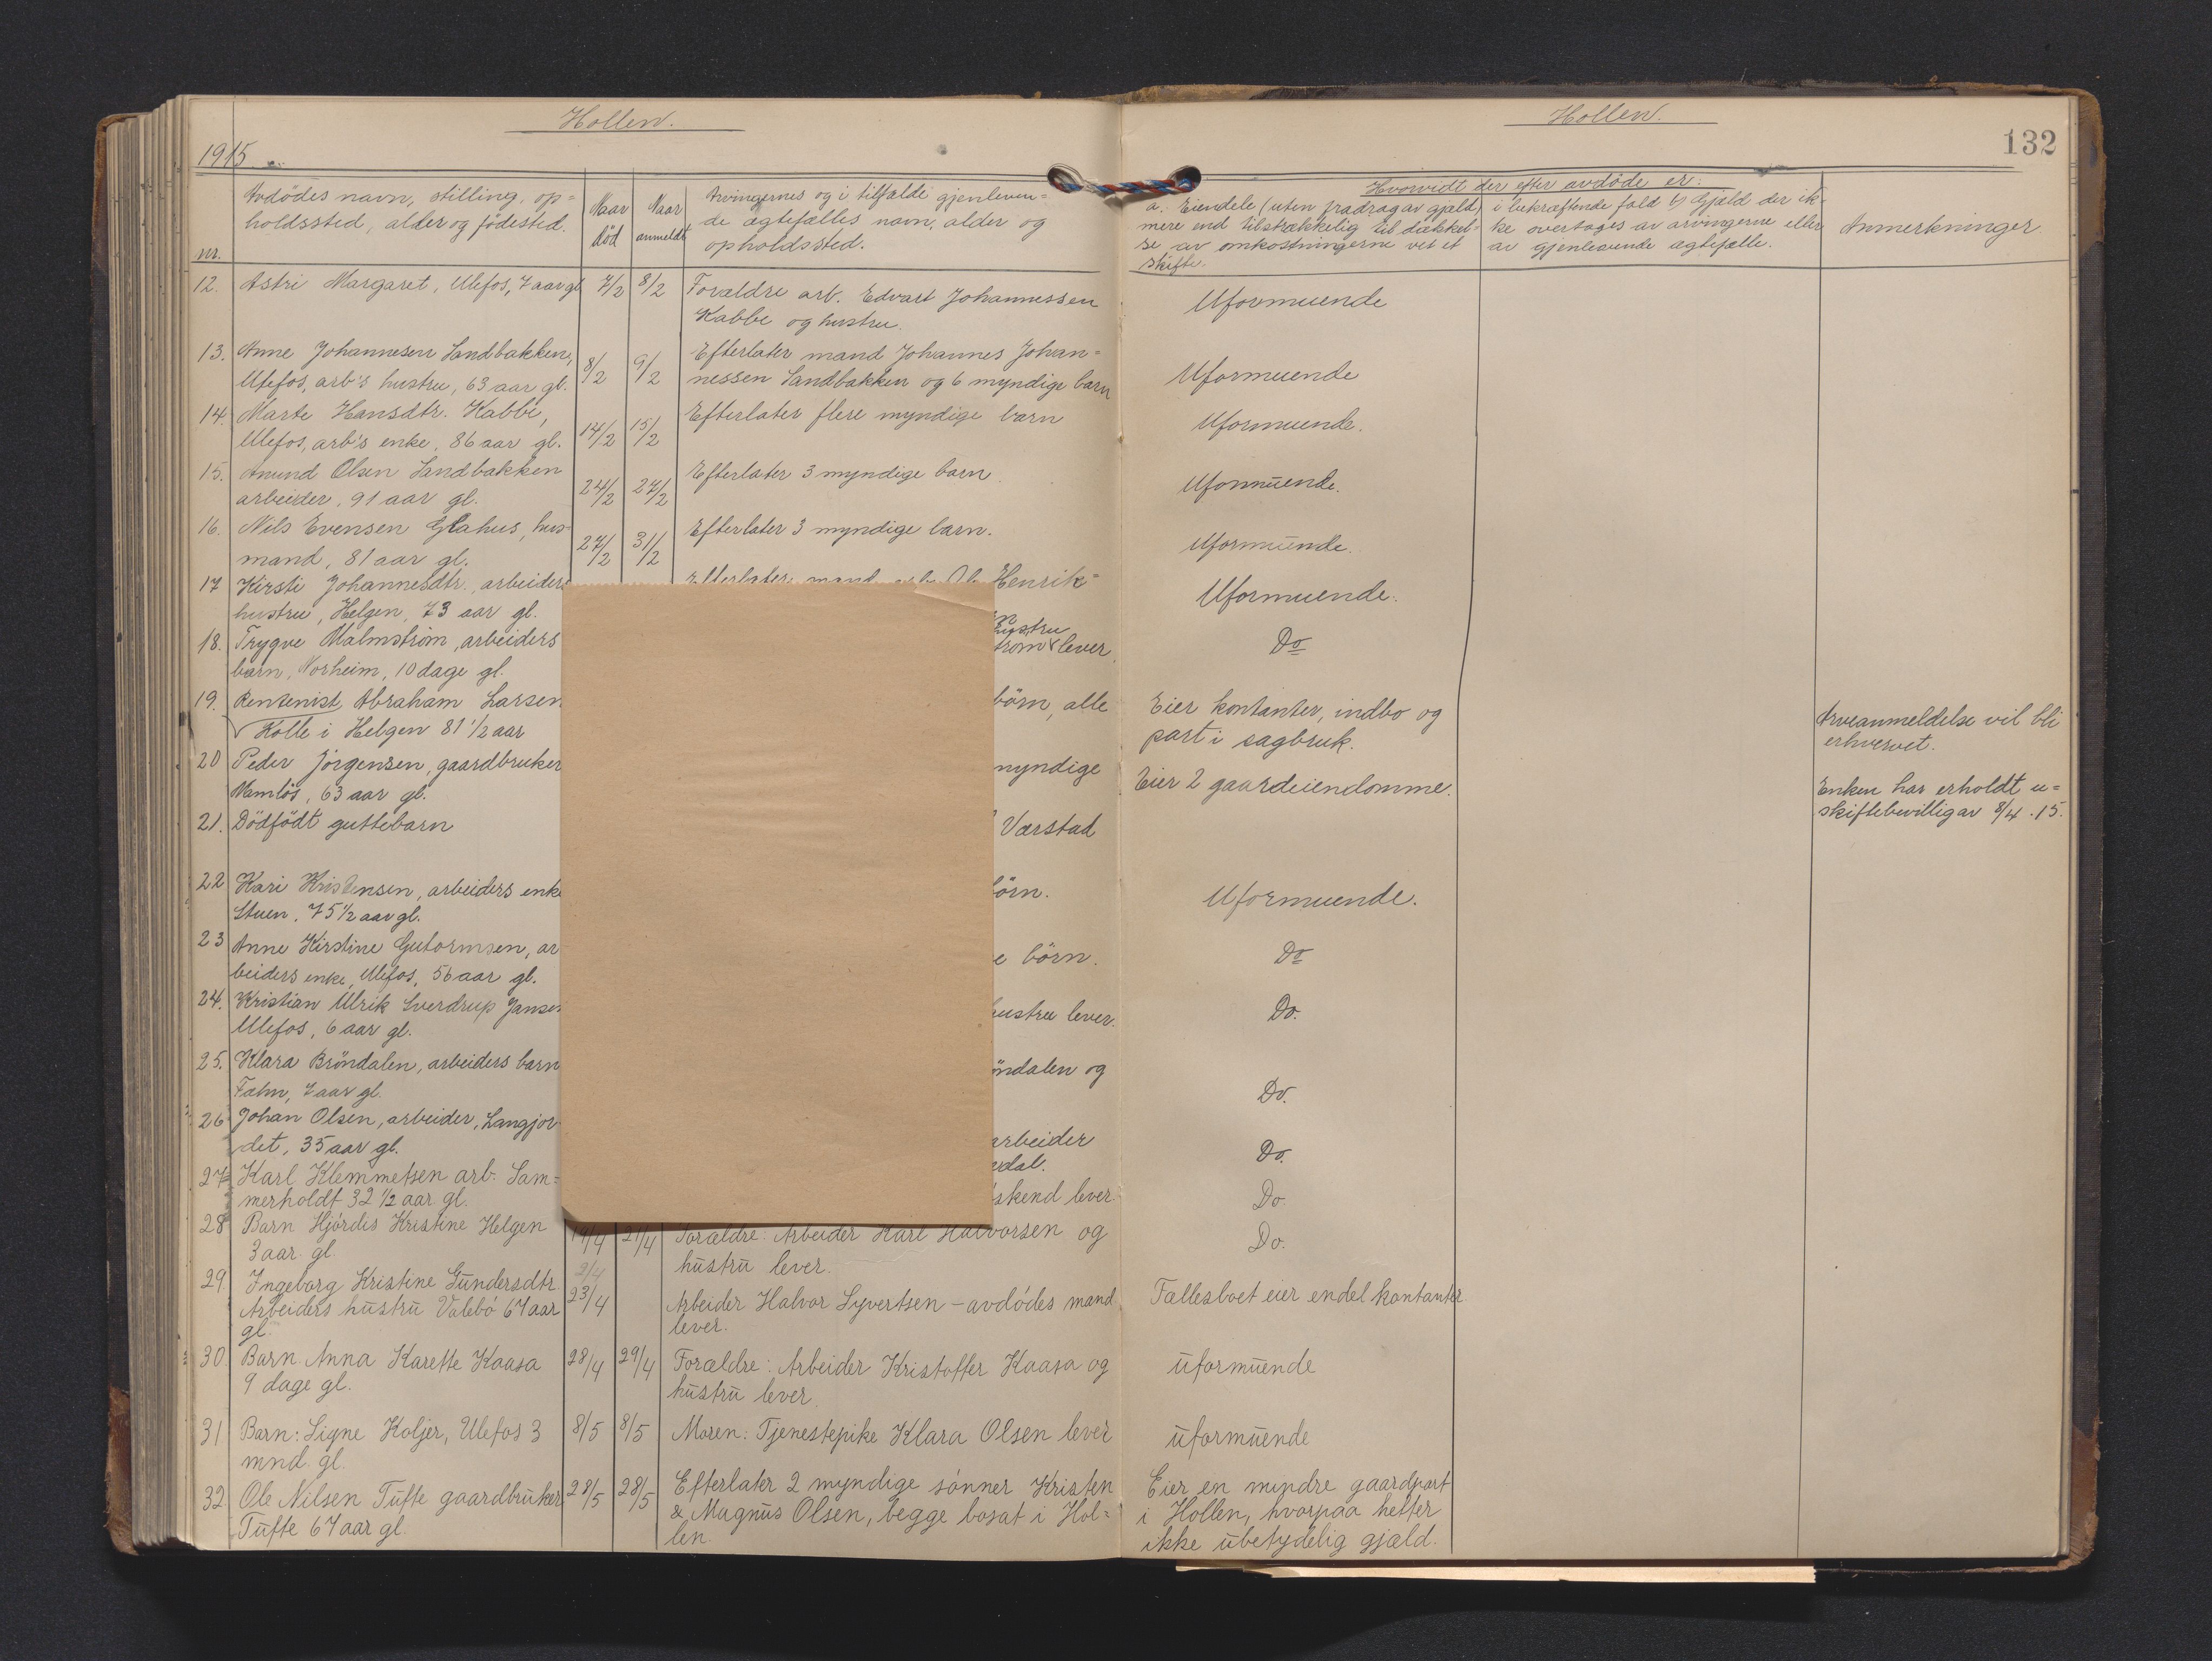 Hollen.
1915
nr.
Avdödes navn, stilling, op=
holdssted, alder og födested.
Naar
död
Naar
anmeldt
Arvingernes og i tilfælde gjenleven=
de ægtefælles navn, alder og
opholdssted.
12. Astri Margaret, Ulefos, 7 aar gl 7/2 8/2 Forældre arb. Edvart Johannessen
Kabbe og hustru.
13. Anne Johannesen Sandbakken, 8/2 9/2 Efterlater mand Johannes Johan=
Ulefos, arb's hustru, 63 aar gl. nessen Sandbakken og 6 myndige barn
14. Marte Hansdtr. Kabbe, 14/2 15/2 Efterlater flere myndige barn
Ulefos, arb's enke, 86 aar gl.
15. Amund Olsen Sandbakken 24/2 27/2 Efterlater 3 myndige barn
arbeider, 91 aar gl.
16. Nils Evensen Glahus, hus- 27/2 31/2 Efterlater 3 myndige barn.
mand, 81 aar gl.
17 Kirsti Johannesdtr., arbeiders Efterlater mand arb. Ole Henrik=
hustru, Helgen, 73 aar gl.
18. Trygve Malmström, arbeiders hustru
tröm lever
barn, Norheim, 10 dage gl.
19. Rentenist Abraham Larsen börn, alle
Kolle i Helgen 81 1/2 aar
20 Peder Jörgensen, gaardbruker myndige
Namlös, 63 aar gl.
21. Dödfödt guttebarn Værstad
22 Kari Kristensen, arbeiders enke börn.
Stuen, 75 1/2 aar gl.
23 Anne Kirstine Gutormsen, ar
beiders enke, Ulefos, 56 aar gl. e börn.
24. Kristian Ulrik Sverdrup Jansen
Ulefos, 6 aar gl. hustru lever.
25. Klara Bröndalen, arbeiders barn öndalen og
Fæhn, 7 aar gl.
26 Johan Olsen, arbeider, Langjor- arbeider
det, 35 aar gl. dal.
27 Karl Klemmetsen arb. Sam= skend lever.
merholdt 32 1/2 aar gl.
28 Barn Hjördis Kristine Helgen 19/4 21/4 Forældre: Arbeider Karl Halvorsen og
3 aar gl. hustru lever.
2/4
29 Ingeborg Kristine Gundersdtr 23/4
Arbeiders hustru Valebö 67 aar Arbeider Halvor Syvertsen – avdödes mand
gl. lever.
30. Barn Anna Karette Kaasa 28/4 29/4 Forældre: Arbeider Kristoffer Kaasa og
9 dage gl. hustru lever.
31 Barn: Signe Koljer, Ulefos 3 8/5 8/5 Moren: Tjenestepike Klara Olsen lever
mnd. gl.
32 Ole Nilsen Tufte gaardbruker 28/5 28/5 Efterlater 2 myndige sönner Kristen
Tufte 67 aar gl. & Magnus Olsen, begge bosat i Hol=
len.
Hollen.
132
Hvorvidt der efter avdöde er:
a. Eiendele (uten fradrag av gjæld)
mere end tilstrækkelig til dækkel=
se av omkostningerne ved et
skifte.
i bekræftende fald b) Gjæld der ik=
ke overtages av arvingerne eller
av gjenlevende ægtefælle.
Anmerkninger
Uformuende
Uformuende
Uformuende.
Uformuende.
Uformuende.
Uformuende.
Do
Eier kontanter, indbo og
part i sagbruk.
Arveanmeldelse vil bli
erhvervet.
Eier 2 gaardeiendomme.
Enken har erholdt u=
skiftebevilling av 8/4.15.
Uformuende.
Do
Do.
Do.
Do.
Do.
Do.
Fællesboet eier endel kontanter.
uformuende
uformuende
Eier en mindre gaardpart
i Hollen, hvorpaa hefter
ikke ubetydelig gjæld.